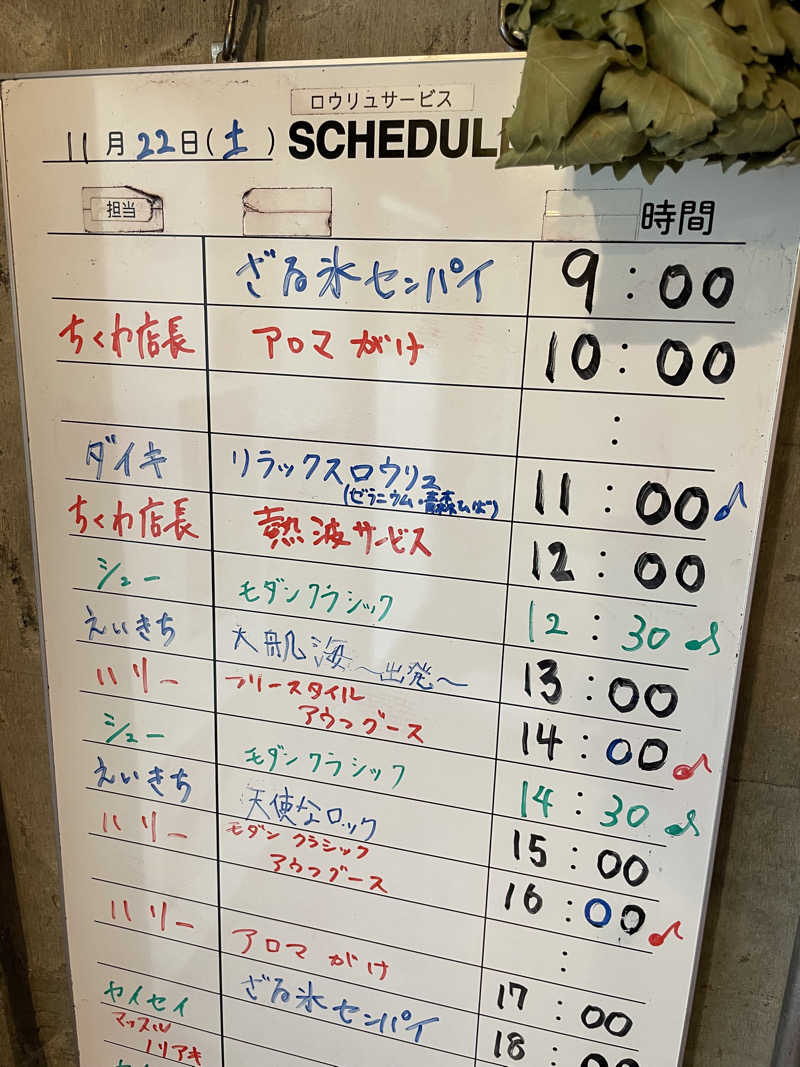 ロウリュサービス
11月22日(土) SCHEDUL
担当 時間
ざる氷センパイ 9:00
ちくわ店長 アロマがけ 10:00
:
ダイキ リラックスロウリュ 11:00♪
(ゼラニウム・青森ひば)
ちくわ店長 熱波サービス 12:00
シュー モダンクラシック 12:30♪
えいきち 大航海〜出発〜 13:00
ハリー フリースタイル 14:00♪
アウフグース
シュー モダンクラシック 14:30♪
えいきち 天使なロック 15:00
ハリー モダンクラシック 16:00♪
アウフグース
:
ハリー アロマがけ 17:00
ヤイセイ ざる氷センパイ 18:00
マッスル
ノリアキ